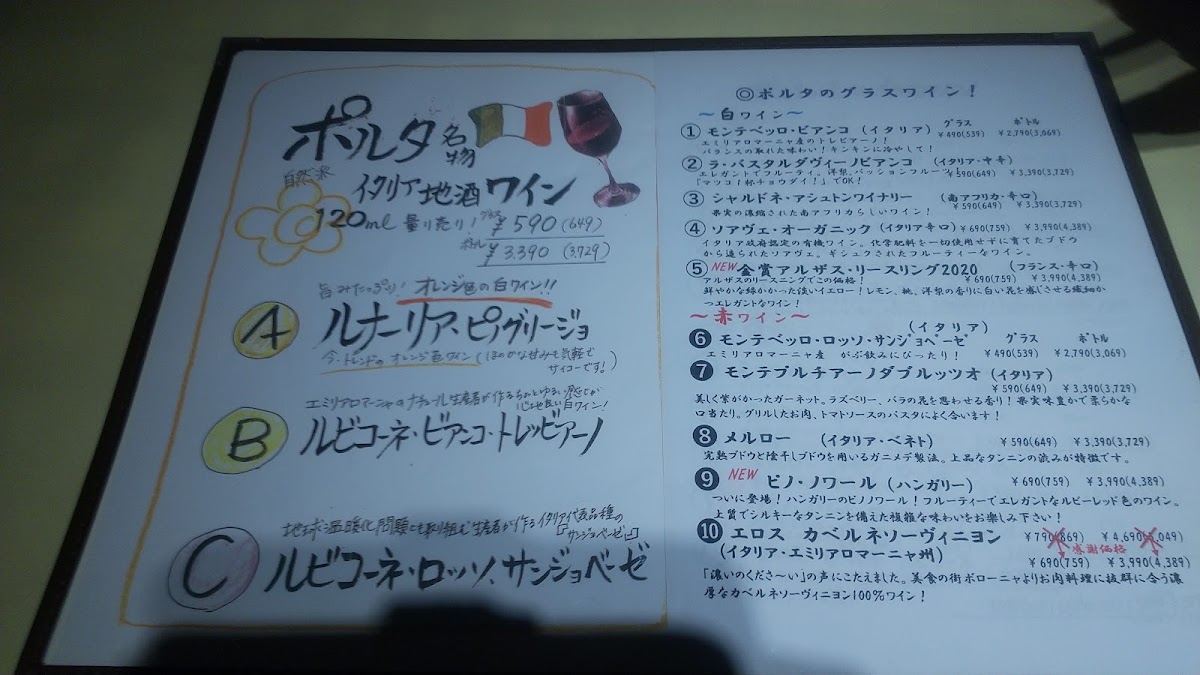 ポルタ名物
自然派
イタリア地酒ワイン
120ml 量り売り! グラス ¥590(649)
ボトル ¥3.390(3.729)
旨みたっぷり! オレンジ色の白ワイン!!
A ルナーリア、ピグリージョ
今、トレンドのオレンジ色ワイン(ほのかな甘みも気軽で
サイコーです!)
エミリアロマーニャのナチュール生産者が作るちょとゆるい感じが
心地良い白ワイン!
B ルビコーネ・ビアンコ・トレッビアーノ
地球温暖化問題にも取り組む生産者が作るイタリア代表品種の
『サンジョベーゼ』
C ルビコーネ・ロッソ、サンジョベーゼ
◎ポルタのグラスワイン!
～白ワイン～
グラス ボトル
① モンテベッロ・ビアンコ (イタリア) ¥490(539) ¥2,790(3,069)
エミリアロマーニャ産のトレビアーノ!
バランスの取れた味わい!キンキンに冷やして!
② ラ・バスタルダヴィーノビアンコ (イタリア・中辛)
エレガントでフルーティ。洋梨、パッションフルーツ ¥590(649) ¥3,390(3,729)
「マッコ1杯チョウダイ!」でOK!
③ シャルドネ・アシュトンワイナリー (南アフリカ・辛口)
果実の濃縮された南アフリカらしいワイン! ¥590(649) ¥3,390(3,729)
④ ソアヴェ・オーガニック (イタリア辛口) ¥690(759) ¥3,990(4,389)
イタリア政府認定の有機ワイン。化学肥料を一切使用せずに育てたブドウ
から造られたソアヴェ。ギシュクされたフルーティーなワイン。
⑤ NEW 金賞アルザス・リースリング2020 (フランス・辛口)
アルザスのリースニングでこの価格! ¥690(759) ¥3,990(4,389)
鮮やかな緑かかった淡いイエロー!レモン、桃、洋梨の香りに白い花を感じさせる繊細か
つエレガントなワイン!
～赤ワイン～
(イタリア) グラス ボトル
❻ モンテベッロ・ロッソ・サンジョベーゼ
エミリアロマーニャ産 がぶ飲みにぴったり! ¥490(539) ¥2,790(3,069)
❼ モンテプルチアーノダブルッツオ (イタリア)
¥590(649) ¥3,390(3,729)
美しく紫がかったガーネット。ラズベリー、バラの花を思わせる香り!果実味豊かで柔らかな
口当たり。グリルしたお肉、トマトソースのパスタによく合います!
❽ メルロー (イタリア・ベネト) ¥590(649) ¥3,390(3,729)
完熟ブドウと陰干しブドウを用いるガニメデ製法。上品なタンニンの渋みが特徴です。
❾ NEW ピノ・ノワール (ハンガリー) ¥690(759) ¥3,990(4,389)
ついに登場!ハンガリーのピノノワール!フルーティーでエレガントなルビーレッド色のワイン。
上質でシルキーなタンニンを備えた複雑な味わいをお楽しみ下さい!
❿ エロス カベルネソーヴィニヨン ¥790(869) ¥4,690(5,049)
感謝価格
(イタリア・エミリアロマーニャ州) ¥690(759) ¥3,990(4,389)
「濃いのくださ～い」の声にこたえました。美食の街ボローニャよりお肉料理に抜群に合う濃
厚なカベルネソーヴィニヨン100%ワイン!